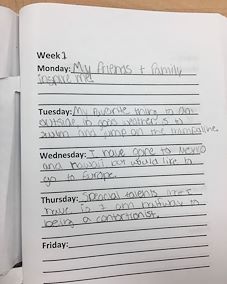 Week 1
Monday: My friends + family
inspire me!
Tuesday: My favorite thing to do
outside in good weather is to
swim and jump on the trampoline.
Wednesday: I have gone to Mexico
and Hawaii but would like to
go to Europe.
Thursday: Special talents I
have is I am halfway to
being a contortionist.
Friday: